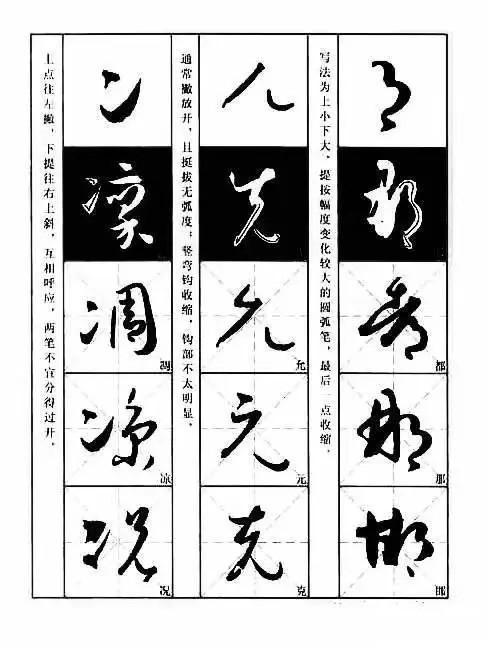 都
那
邯
写法为上小下大，提按幅度变化较大的圆弧笔，最后一点收缩。
儿
先
允
元
克
通常撇放开，且挺拔无弧度；竖弯钩收缩，钩部不太明显。
冫
凛
凋
凉
况
上点往左撇，下提往右上斜，互相呼应，两笔不宜分得过开。